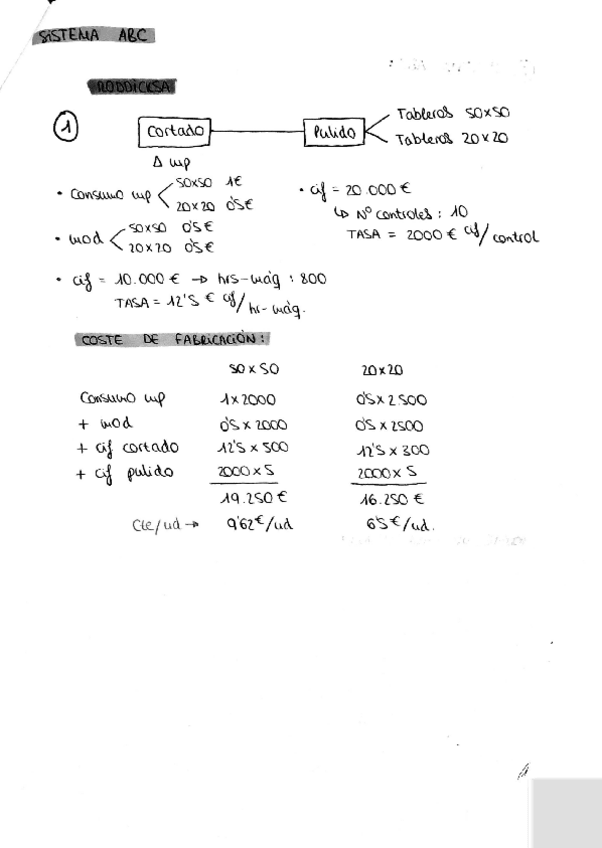 SISTEMA ABC
RODDICKSA
1
Cortado
Pulido
Tableros 50x50
Tableros 20x20
Δ mp
• Consumo mp
50x50 1€
20x20 0'5€
• mod
50x50 0'5€
20x20 0'5€
• cif = 20.000 €
↳ Nº controles : 10
TASA = 2000 € cif/control
• cif = 10.000 € → hrs-máq : 800
TASA = 12'5 € cif/hr-máq.
COSTE DE FABRICACIÓN :
50 x 50 20x20
Consumo mp 1x2000 0'5x2.500
+ mod 0'5 x 2000 0'5 x 2500
+ cif cortado 12'5 x 500 12'5 x 300
+ cif pulido 2000 x 5 2000 x 5
19.250 € 16.250 €
Cte/ud → 9'62€/ud 6'5€/ud.